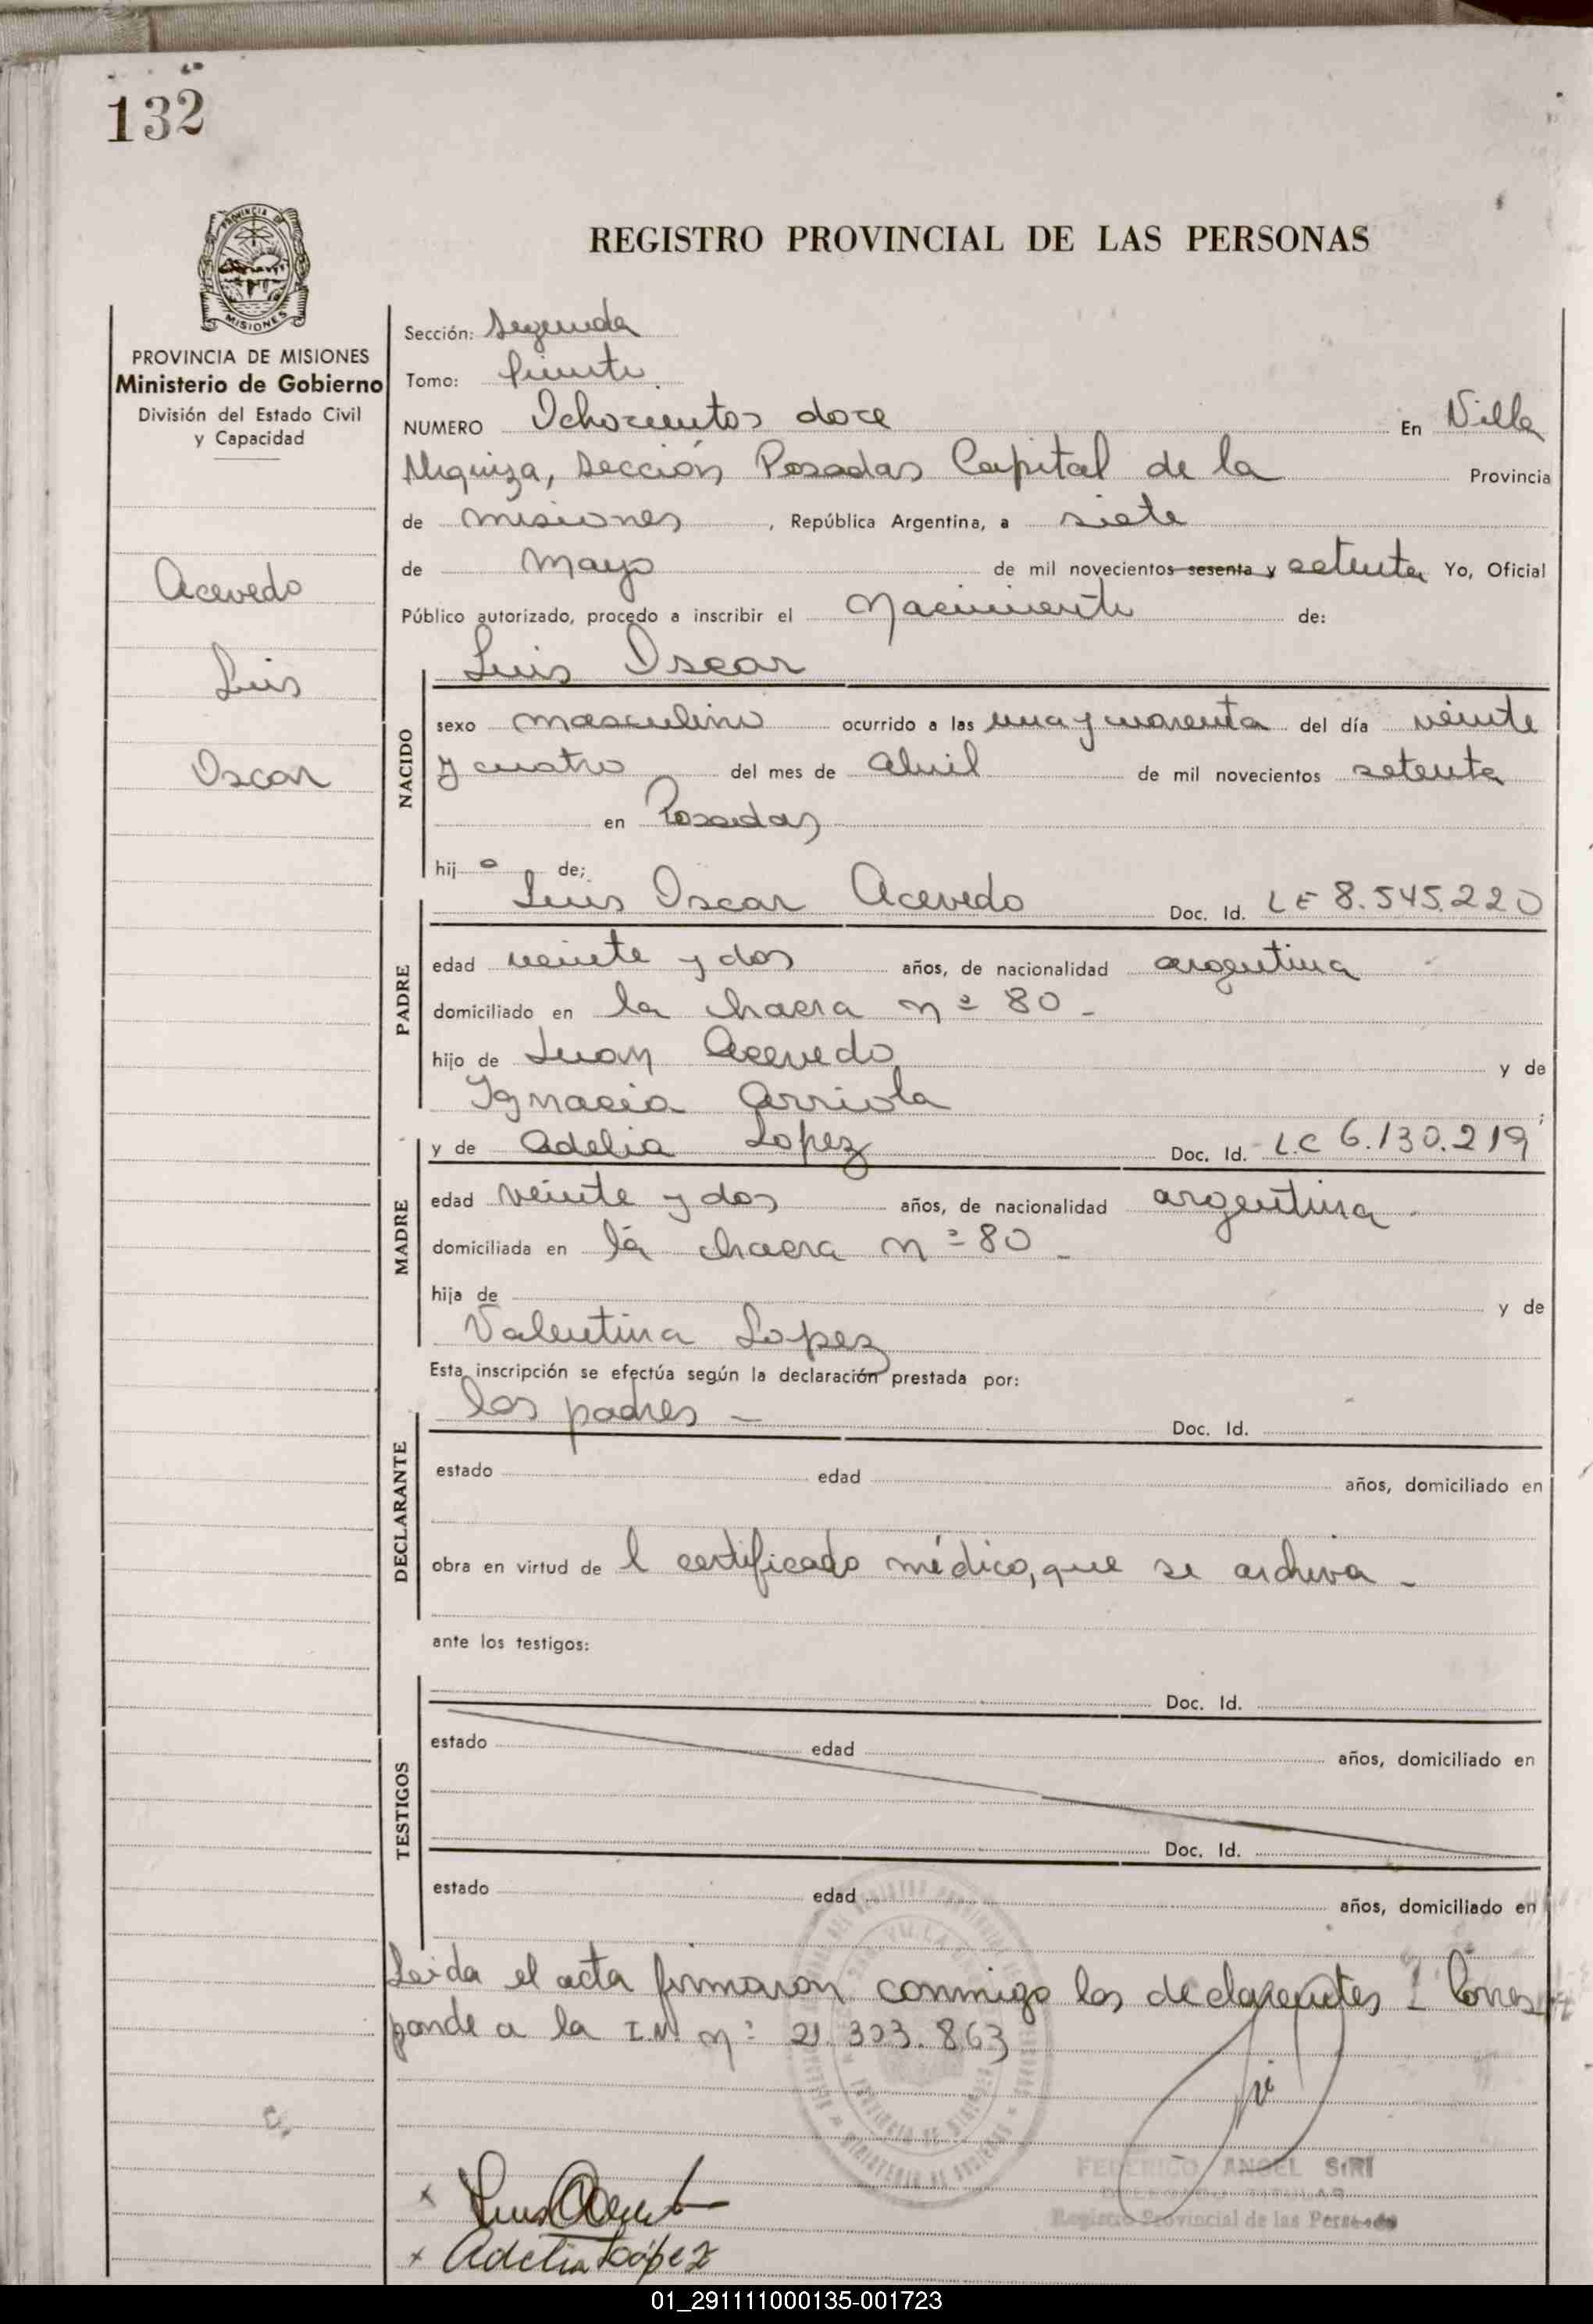 132
PROVINCIA DE
MISIONES
REGISTRO PROVINCIAL DE LAS PERSONAS
PROVINCIA DE MISIONES
Ministerio de Gobierno
División del Estado Civil
y Capacidad
Acevedo
Luis
Oscar
Sección: Segunda
Tomo:
NUMERO Ochocientos doce En Villa
Urquiza, Sección Posadas Capital de la Provincia
de misiones, República Argentina, a siete
de Mayo de mil novecientos sesenta y setenta Yo, Oficial
Público autorizado, procedo a inscribir el Nacimiento de:
Luis Oscar
NACIDO
sexo masculino ocurrido a las una y cuarenta del día veinte
y cuatro del mes de abril de mil novecientos setenta
en Posadas
hijo de;
Luis Oscar Acevedo Doc. Id. LE 8.545.220
PADRE
edad veinte y dos años, de nacionalidad argentina
domiciliado en la chacra nº 80 -
hijo de Juan Acevedo y de
Ignacia Arriola;
y de Adelia Lopez Doc. Id. L.C 6.130.219
MADRE
edad veinte y dos años, de nacionalidad argentina.
domiciliada en la chacra nº 80 -
hija de y de
Valentina Lopez
Esta inscripción se efectúa según la declaración prestada por:
los padres - Doc. Id.
DECLARANTE
estado edad años, domiciliado en
obra en virtud de l certificado médico, que se archiva -
ante los testigos:
Doc. Id.
TESTIGOS
estado edad años, domiciliado en
Doc. Id.
estado edad años, domiciliado en
Leida el acta firmaron conmigo los declarentes - Corres
ponde a la I.N. nº 21.303.863
FEDERICO ANGEL SIRI
DELEGADO TITULAR
Registro Provincial de las Personas
x Luis Acevedo
x Adelia López
01_291111000135-001723